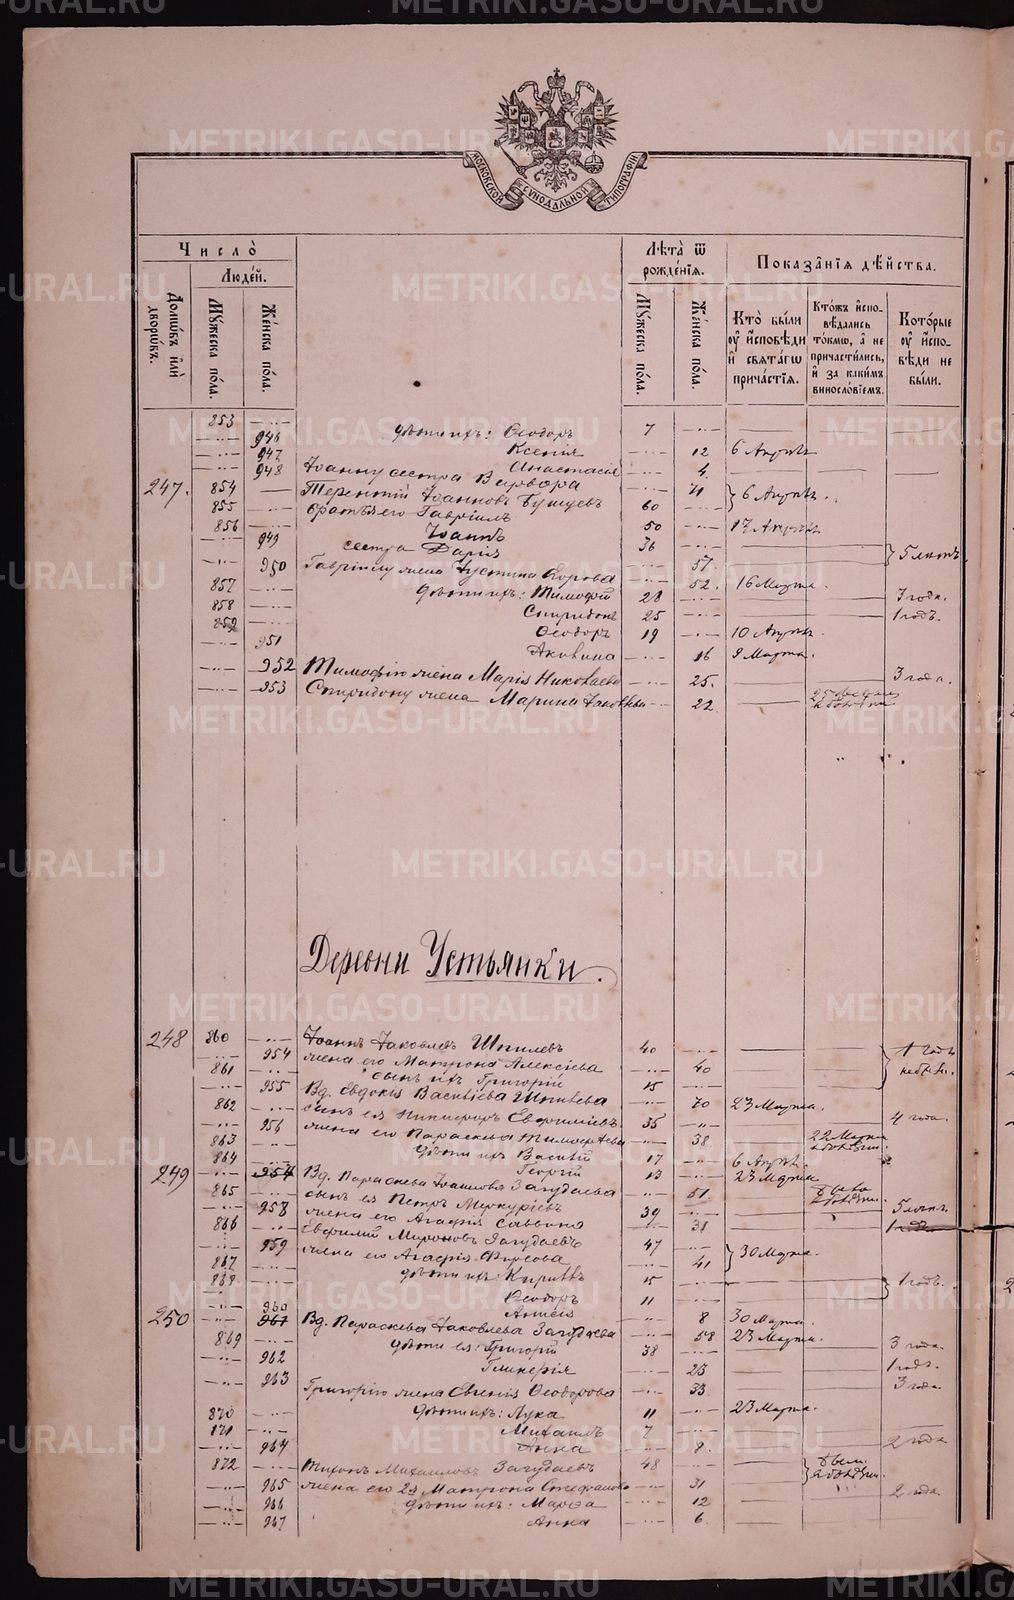 МОСКОВСКОЙ СѴНОДАЛЬНОЙ ТИПОГРАФІИ
Число̀
Людéй.
Домѡ́въ и҆лѝ дворѡ́въ.
Мꙋ́жеска по́ла.
Же́нска по́ла.
Лѣта̀ ѿ рожде́нїѧ.
Мꙋ́жеска по́ла.
Же́нска по́ла.
Показа́нїѧ дѣ́йства.
Кто̀ бы́ли оу҆ и҆сповѣ́ди и҆ свѧта́гѡ прича́стїѧ.
Кто́жъ и҆спо-вѣ́дались то́кмѡ, а҆ не причасти́лись, и҆ за каки́мъ винослові́емъ.
Кото́рые оу҆ и҆спо-вѣ́ди не бы́ли.
853 дѣти ихъ: Ѳеодоръ 7
946 Ксенія 12 6 Апрѣля
947 Анастасія 4
948 Іоанну сестра Варвара 71
247. 854 Терентій Іоанновъ 60 6 Апрѣля.
855 братья его Гавріилъ 50 17 Апрѣля
856 Іоаннъ 36
949 сестра Дарія 57 5 лѣтъ
950 Гавріилу жена Іустина Егорова 52. 16 Марта.
857 Дѣти ихъ: Тимофей 28 3 года.
858 Спиридонъ 25 1 годъ.
859 Ѳеодоръ 19 10 Апрѣля.
951 Акилина 16 9 Марта.
952 Тимофею жена Марія Николаева 25. 3 года.
953 Спиридону жена Марина Іаковлева 22
Деревни Устьянки.
248 860 Іоаннъ Іаковлевъ Шипилевъ 40 1 годъ
954 жена его Матрона Алексіева 40
861 сынъ ихъ Григорій 15
955 Вд. Евдокія Васильева 70 23 Марта.
862 сынъ ея Никифоръ 35 4 года.
956 жена его Параскева Тимофеева 38 22 Марта
863 Дѣти ихъ Василій 17 6 Апрѣля.
864 Георгій 13 23 Марта
249 957 Вд. Параскева Загудаева 51
865 сынъ ея Петръ Меркуріевъ 39 5 лѣтъ.
958 жена его Агафія Саввина 38 1 годъ
866 Евфимій Мироновъ Загудаевъ 47
959 жена его Агафія Фирсова 41 30 Марта.
867 дѣти ихъ: Кириллъ 15 1 годъ.
868 Ѳеодоръ 11
960 Анисія 8 30 Марта.
250 961 Вд. Параскева Іаковлева Загудаева 58 23 Марта.
869 дѣти ея: Григорій 38 3 года.
962 Гликерія 23 1 годъ.
963 Григорію жена Евгенія Ѳеодорова 33 3 года.
870 Дѣти ихъ: Лука 11 23 Марта.
871 Михаилъ 7
964 Анна 8. 2 года
872 Тихонъ Михаиловъ Загудаевъ 48
965 жена его 2я Матрона Стефанова 31 2 года.
966 дѣти ихъ: Марѳа 12
967 Анна 6.
METRIKI.GASO-URAL.RU